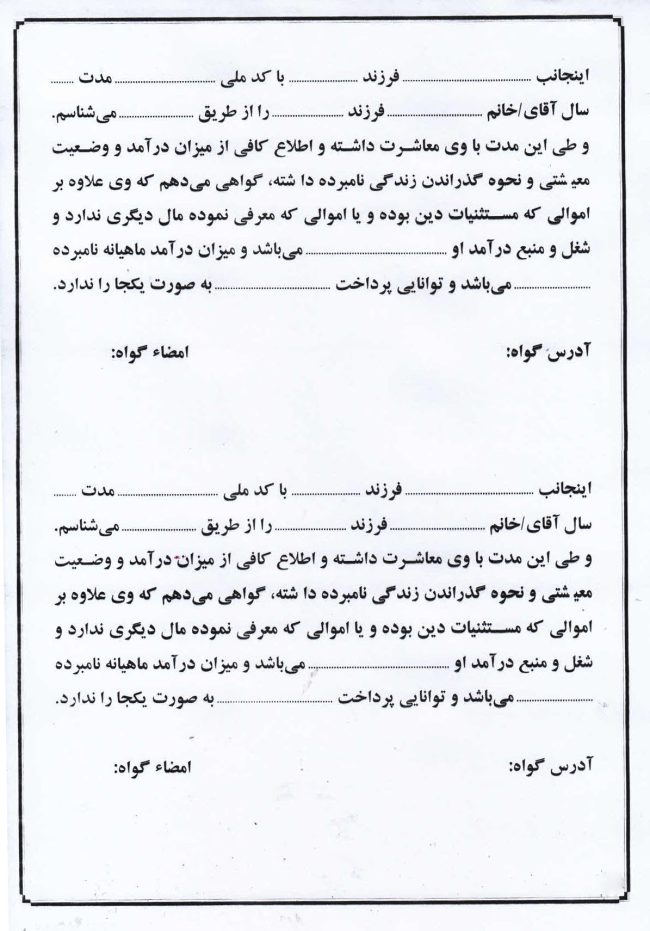 اینجانب ........................ فرزند ................ با کد ملی ........................ مدت ......
سال آقای/خانم ........................ فرزند ................ را از طریق ................ می‌شناسم.
و طی این مدت با وی معاشرت داشته و اطلاع کافی از میزان درآمد و وضعیت
معیشتی و نحوه گذراندن زندگی نامبرده دا شته، گواهی می‌دهم که وی علاوه بر
اموالی که مستثنیات دین بوده و یا اموالی که معرفی نموده مال دیگری ندارد و
شغل و منبع درآمد او ........................ می‌باشد و میزان درآمد ماهیانه نامبرده
................ می‌باشد و توانایی پرداخت ........................ به صورت یکجا را ندارد.
آدرس گواه: امضاء گواه:
اینجانب ........................ فرزند ................ با کد ملی ........................ مدت ......
سال آقای/خانم ........................ فرزند ................ را از طریق ................ می‌شناسم.
و طی این مدت با وی معاشرت داشته و اطلاع کافی از میزان درآمد و وضعیت
معیشتی و نحوه گذراندن زندگی نامبرده دا شته، گواهی می‌دهم که وی علاوه بر
اموالی که مستثنیات دین بوده و یا اموالی که معرفی نموده مال دیگری ندارد و
شغل و منبع درآمد او ........................ می‌باشد و میزان درآمد ماهیانه نامبرده
................ می‌باشد و توانایی پرداخت ........................ به صورت یکجا را ندارد.
آدرس گواه: امضاء گواه: